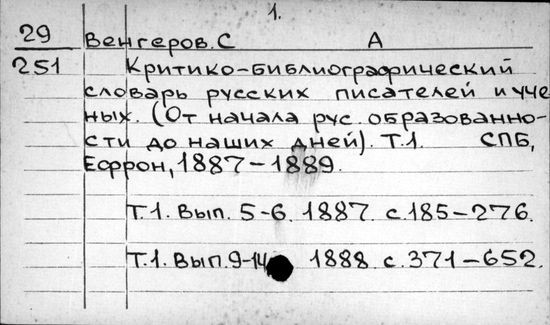 1.
29 Венгеров. С А
251 Критико-библиографический
словарь русских писателей и уче
ных. (От начала рус. образованно-
сти до наших дней). Т.1. СПБ,
Ефрон, 1887-1889.
Т.1. Вып. 5-6. 1887. с.185-276.
Т.1. Вып. 9-14 1888. с.371-652.